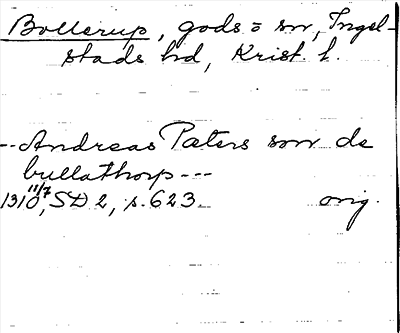 Bollerup, gods o sn, Ingel-
stads hd, Krist. l.
--Andreas Pæters son de
bullathorp---
1310 11/7, SD 2, s. 623. orig.